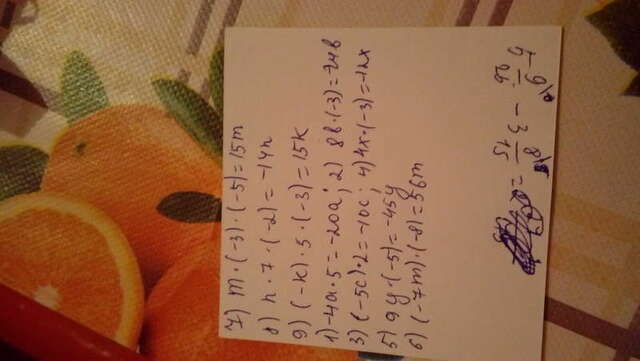 7) m·(-3)·(-5)=15m
8) n·7·(-2)=-14n
9) (-k)·5·(-3)=15k
1) -4a·5=-20a; 2) 8b·(-3)=-24b
3) (-5c)·2=-10c; 4) 4x·(-3)=-12x
5) 9y·(-5)=-45y
6) (-7m)·(-8)=56m